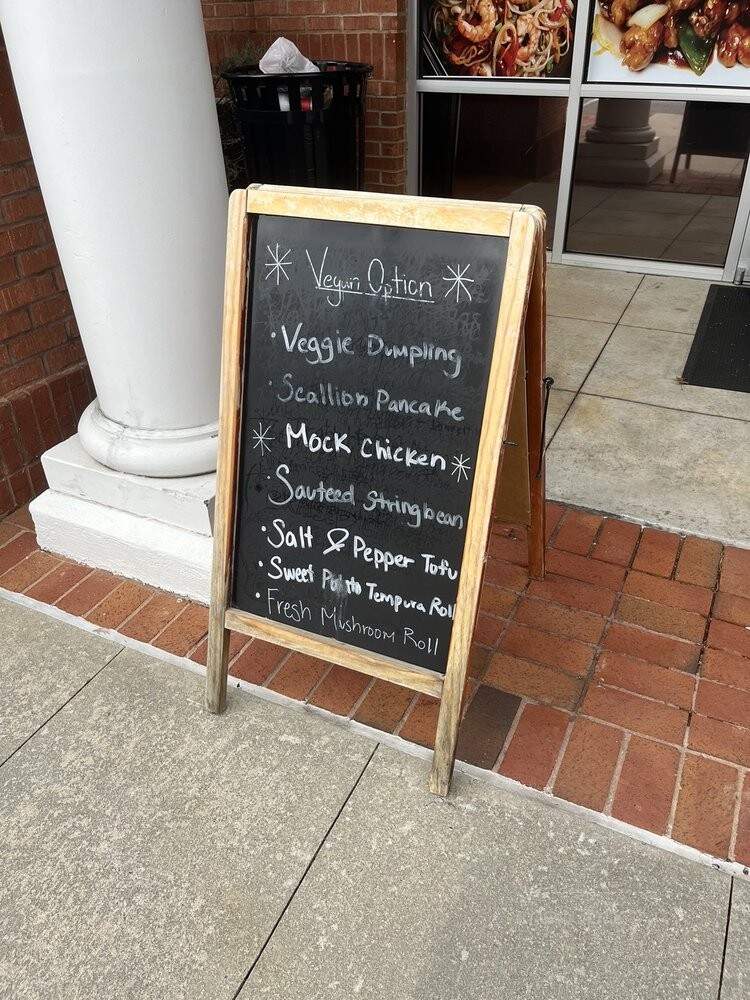 * Vegan Option *
• Veggie Dumpling
• Scallion Pancake
* Mock Chicken *
• Sauteed Stringbean
• Salt & Pepper Tofu
• Sweet Potato Tempura Roll
• Fresh Mushroom Roll